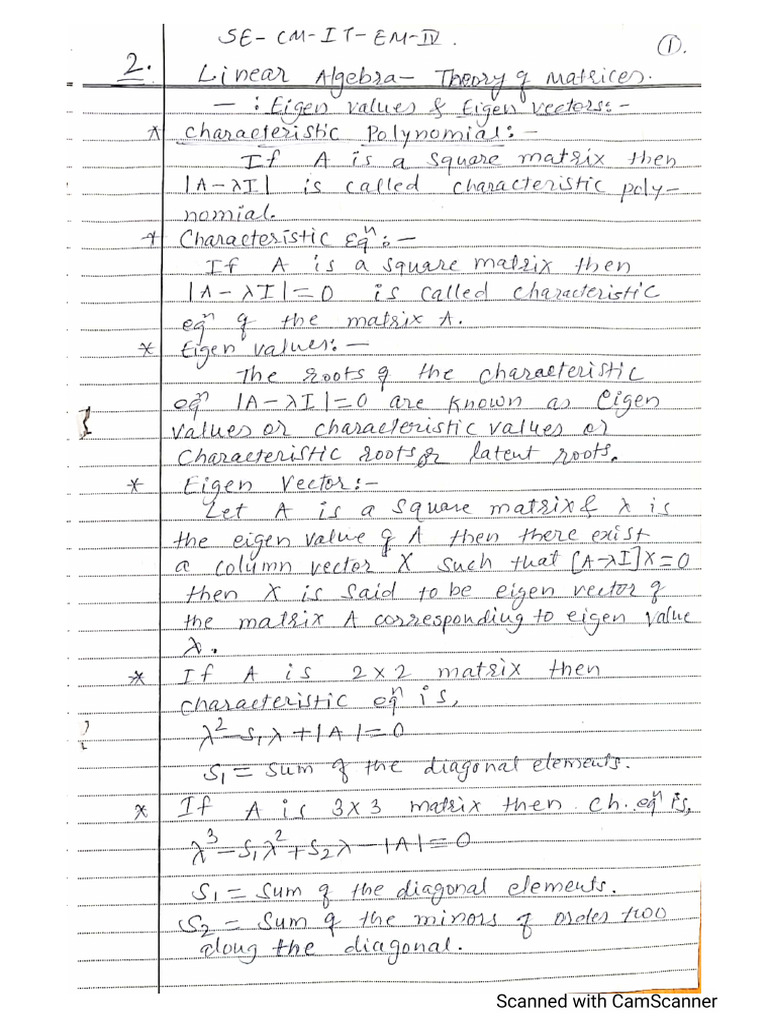 SE- CM-IT-EM-IV.
①.
2. Linear Algebra- Theory of matrices.
- : Eigen values & Eigen vectors:-
* Characteristic Polynomial:-
If A is a square matrix then
|A-λI| is called characteristic poly-
nomial.
* Characteristic Eqⁿ:-
If A is a square matrix then
|A-λI|=0 is called characteristic
eqⁿ of the matrix A.
* Eigen values:-
The roots of the characteristic
eqⁿ |A-λI|=0 are known as Eigen
values or characteristic values or
characteristic roots or latent roots.
* Eigen Vector:-
Let A is a square matrix & λ is
the eigen value of A then there exist
a column vector X such that [A-λI]X=0
then X is said to be eigen vector of
the matrix A corresponding to eigen value
λ.
* If A is 2×2 matrix then
characteristic eqⁿ is,
λ²-S₁λ+|A|=0
S₁= sum of the diagonal elements.
* If A is 3×3 matrix then ch. eqⁿ is,
λ³-S₁λ²+S₂λ-|A|=0
S₁= sum of the diagonal elements.
S₂= sum of the minors of order two
along the diagonal.
Scanned with CamScanner